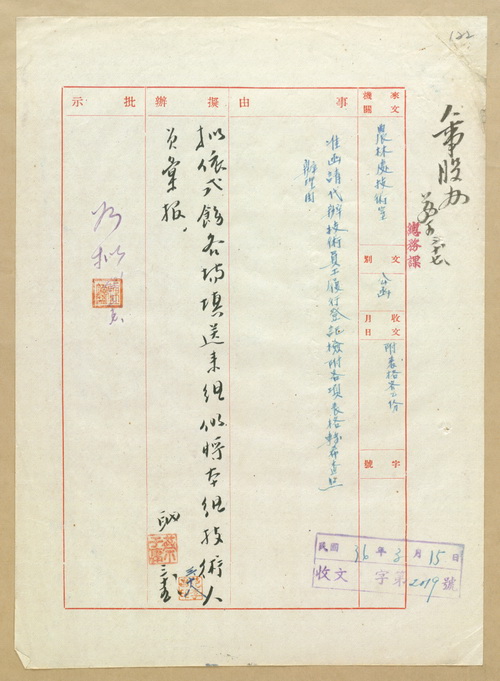 122
人事股办
總務課
來文機關
農林處技術室
文別
公函
收文 月 日
附表格各二份
字 號
事由
准函請代辦技術員工履行登記檢附各項表格轉希查照
辦理由
擬辦
擬依式飭各場填送來組俾將本組技術人
員彙報
批示
如擬
民國36年3月15日
收文 字第2019號